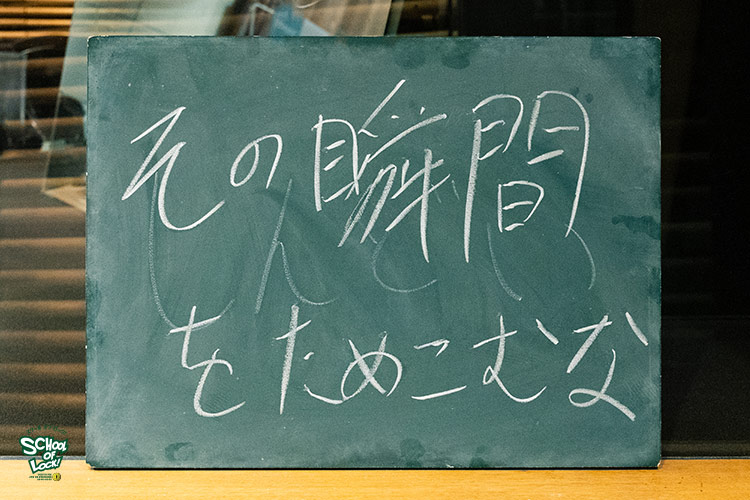 その瞬間
しんどい
をためこむな
SCHOOL
OF
LOCK!